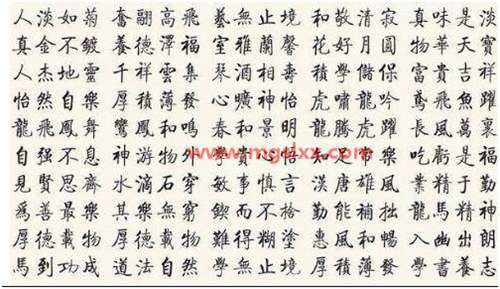 人淡如菊 奮翮高飛 藝無止境 和敬清寂 真味是淡
真金不鍍 養德澤福 室雅蘭馨 花好月圓 物華天寶
人杰地靈 千祥雲集 琴酒相壽 積學儲保 富貴吉祥
怡然自樂 厚積薄發 心曠神怡 虎嘯龍吟 鳶飛魚躍
龍飛鳳舞 鸞鳳和鳴 春和景明 龍騰虎躍 長風萬裏
自强不息 神游物外 學 心悟 知 樂 吃虧是福
www.mgtlxx.com
見賢思齊 水滴石穿 敏事慎言 漢唐雄風 業精于勤
爲善最樂 其樂無窮 鍥而不捨 勤能補拙 龍馬精神
厚德載物 厚德載物 難得糊塗 惠風和暢 入幽出朗
馬到功成 道法自然 學無止境 厚積薄發 學書養志